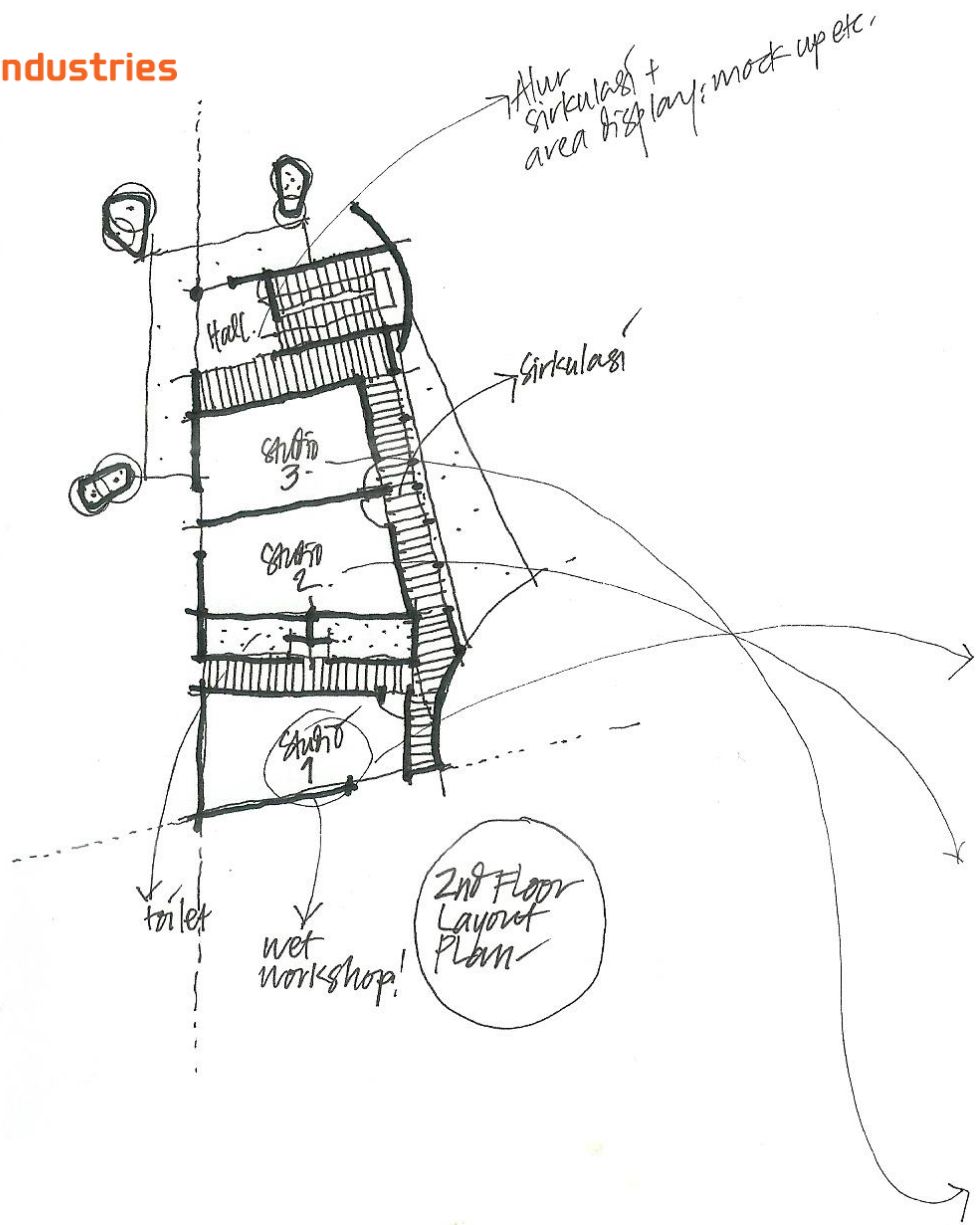 ndustries
Alur
sirkulasi +
area display: mock up etc.
Hall.
sirkulasi
studio
3-
studio
2.
studio
1
toilet
wet
workshop!
2nd Floor
Layout
Plan-